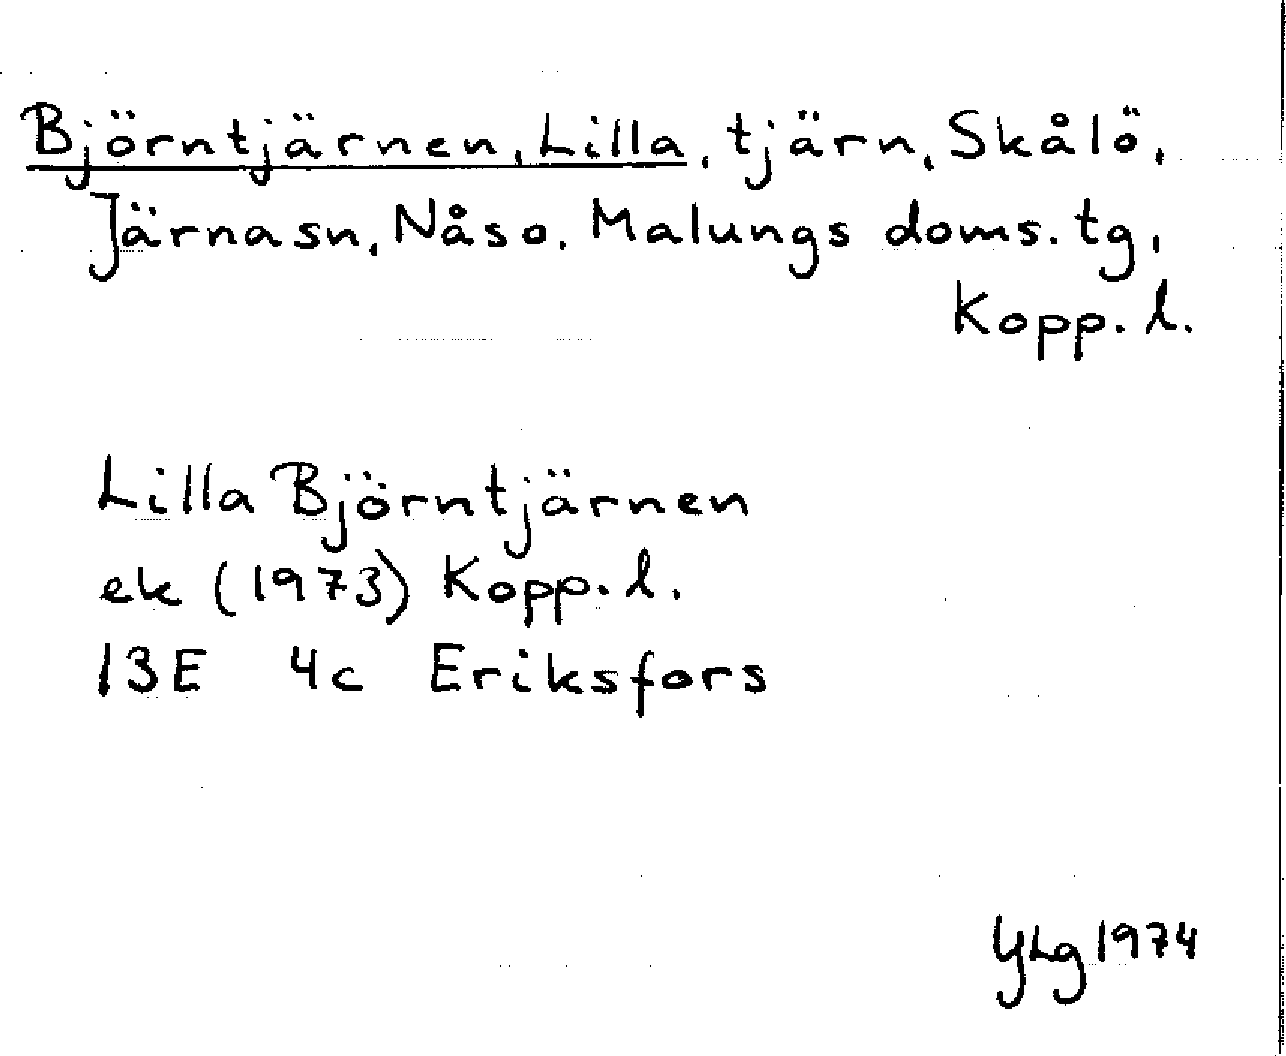 Björntjärnen, Lilla, tjärn, Skålö,
Järnasn, Nåso, Malungs doms. tg,
Kopp. l.
Lilla Björntjärnen
ek (1973) Kopp. l.
13E 4c Eriksfors
YLg 1974